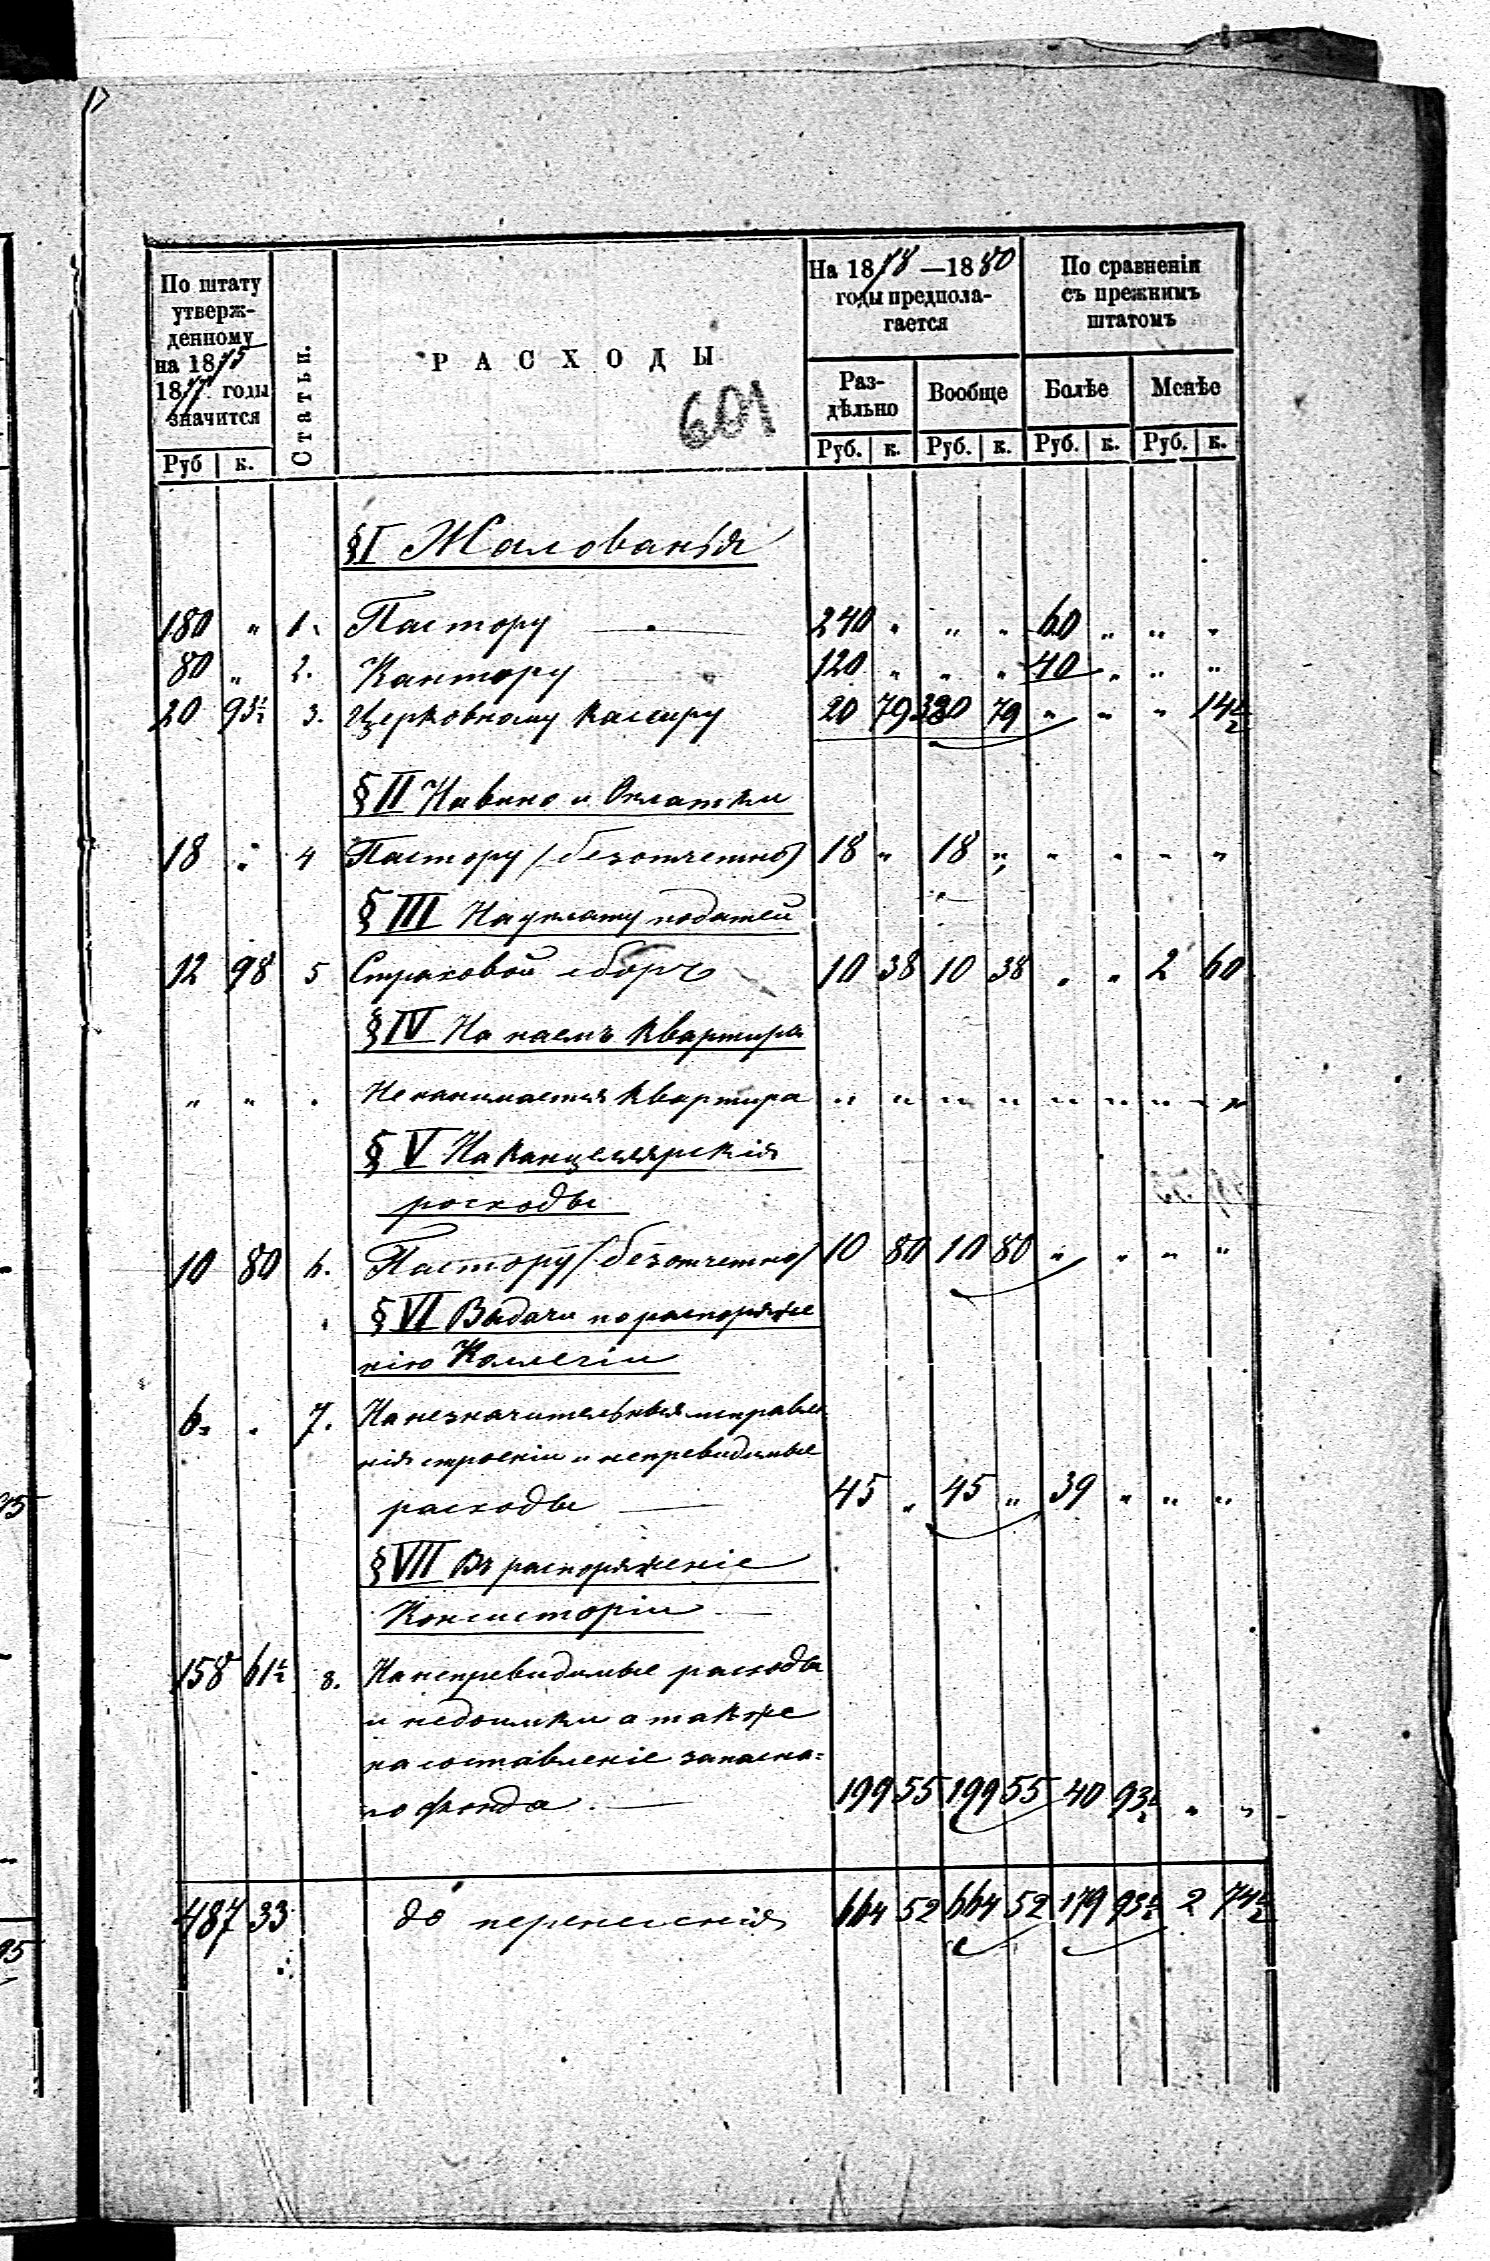 По штату
утверж-
денному
на 1875
1877 годы
значится
Статьи.
РАСХОДЫ
601
На 1878—1880
годы предпола-
гается
По сравненiи
съ прежнимъ
штатомъ
Раз-
дѣльно
Вообще
Болѣе
Менѣе
Руб к.
Руб. к. Руб. к. Руб. к. Руб. к.
§ I Жалованья
180 " 1. Пастору — 240 " " " 60 " " "
80 " 2. Кантору 120 " " " 40 " " "
20 93½ 3. Церковному кассиру 20 79 380 79 " " " 14½
§ II На вино и Оклатки
18 " 4 Пастору (безотчетно) 18 " 18 " " " " "
§ III На уплату податей
12 98 5 Страховой сборъ 10 38 10 38 " " 2 60
§ IV На наемъ квартиры
" " . Не нанимается квартира " " " " " " " "
§ V На канцелярскiя
росходы
10 80 6. Пастору (безотчетно) 10 80 10 80 " " " "
§ VI Выдачи по распоряже
нiю Коллегiи
6 " 7. На незначительныя исправле
нiя строенiи и непревидимые
расходы — 45 " 45 " 39 " " "
§ VII Въ распоряженiе
Консисторiи —
158 61½ 8. На непревидимые расходы
и недоимки а также
на составленiе запасна=
го фонда. — 199 55 199 55 40 93½ " "
487 33 до перенесенiя 664 52 664 52 179 93½ 2 74½